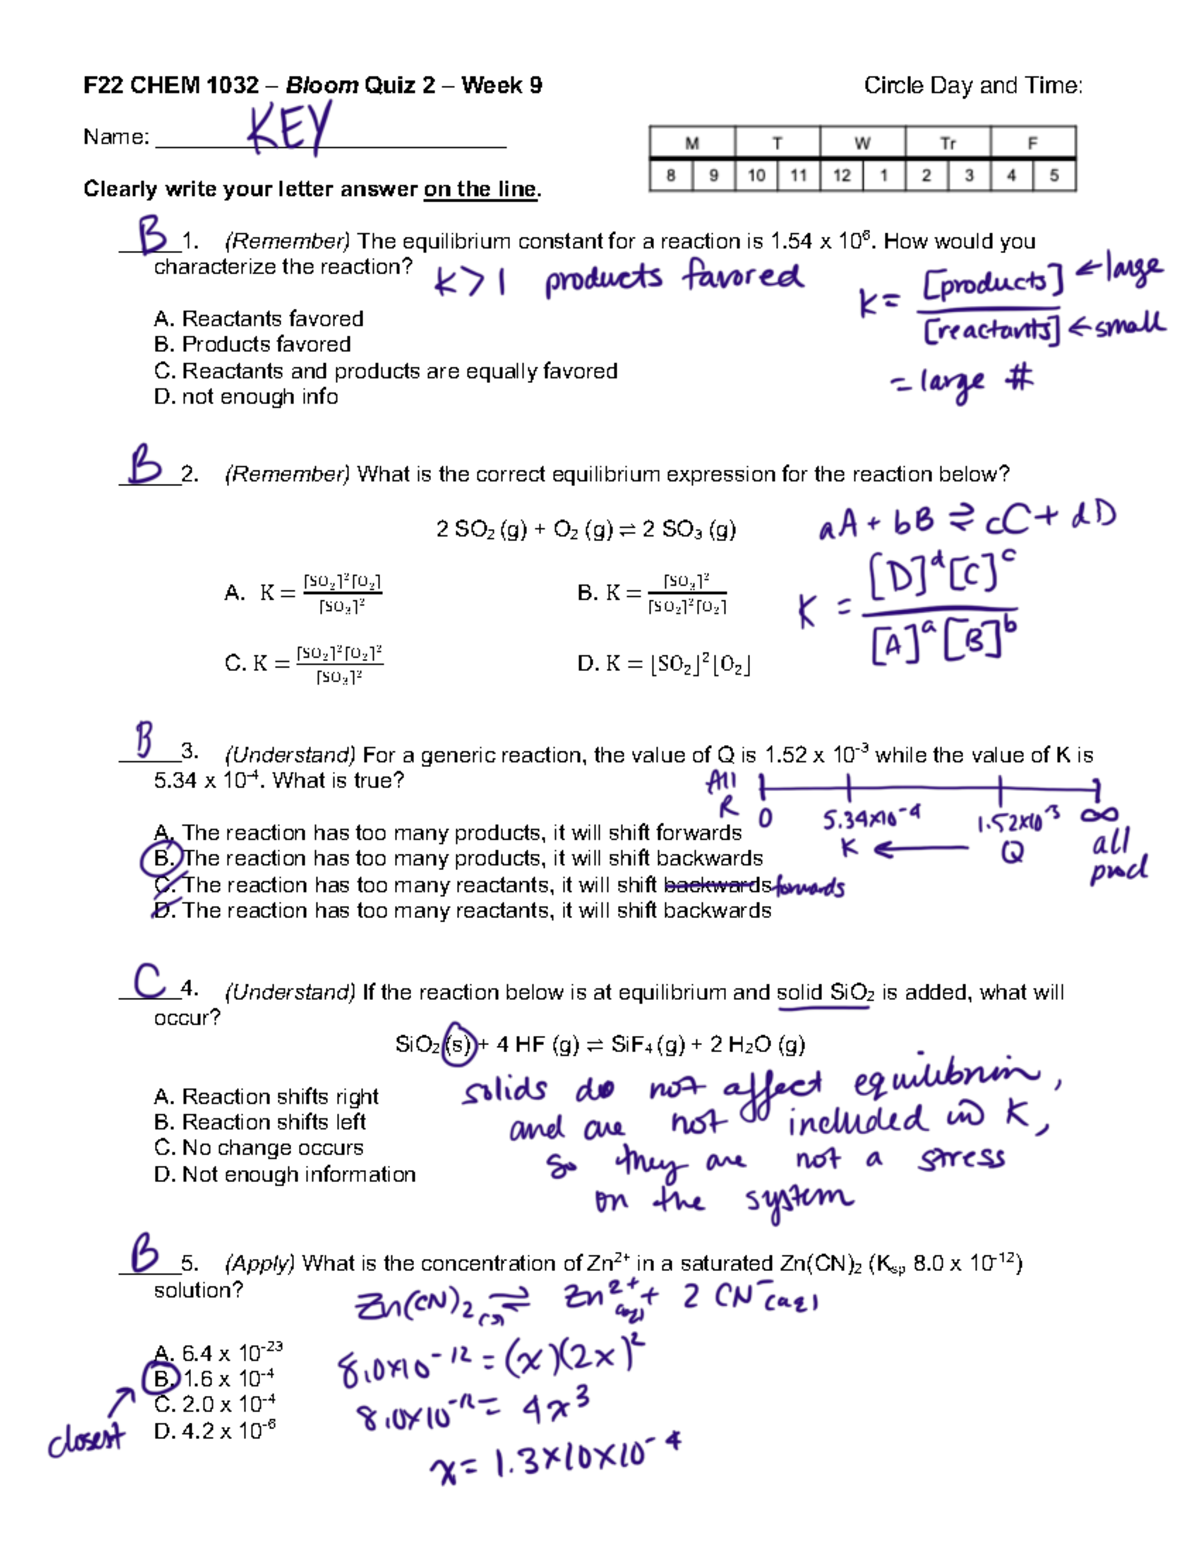 F22 CHEM 1032 – Bloom Quiz 2 – Week 9 Circle Day and Time:
Name: KEY
M T W Tr F
8 9 10 11 12 1 2 3 4 5
Clearly write your letter answer on the line.
B 1. (Remember) The equilibrium constant for a reaction is 1.54 x 10⁶. How would you
characterize the reaction?
K > 1 products favored
K = [products] ← large
[reactants] ← small
= large #
A. Reactants favored
B. Products favored
C. Reactants and products are equally favored
D. not enough info
B 2. (Remember) What is the correct equilibrium expression for the reaction below?
2 SO₂ (g) + O₂ (g) ⇌ 2 SO₃ (g)
aA + bB ⇌ cC + dD
K = [D]ᵈ[C]ᶜ / [A]ᵃ[B]ᵇ
A. K = [SO₂]²[O₂] / [SO₃]² B. K = [SO₃]² / [SO₂]²[O₂]
C. K = [SO₂]²[O₂]² / [SO₃]² D. K = [SO₂]²[O₂]
B 3. (Understand) For a generic reaction, the value of Q is 1.52 x 10⁻³ while the value of K is
5.34 x 10⁻⁴. What is true?
All R 0 5.34x10⁻⁴ 1.52x10⁻³ ∞
K ← Q all prod
A. The reaction has too many products, it will shift forwards
B. The reaction has too many products, it will shift backwards
C. The reaction has too many reactants, it will shift backwards forwards
D. The reaction has too many reactants, it will shift backwards
C 4. (Understand) If the reaction below is at equilibrium and solid SiO₂ is added, what will
occur?
SiO₂ (s) + 4 HF (g) ⇌ SiF₄ (g) + 2 H₂O (g)
solids do not affect equilibrium,
and are not included in K,
so they are not a stress
on the system
A. Reaction shifts right
B. Reaction shifts left
C. No change occurs
D. Not enough information
B 5. (Apply) What is the concentration of Zn²⁺ in a saturated Zn(CN)₂ (Kₛₚ 8.0 x 10⁻¹²)
solution?
Zn(CN)₂ (s) ⇌ Zn²⁺ (aq) + 2 CN⁻ (aq)
8.0x10⁻¹² = (x)(2x)²
8.0x10⁻¹² = 4x³
x = 1.3x10x10⁻⁴
A. 6.4 x 10⁻²³
B. 1.6 x 10⁻⁴
C. 2.0 x 10⁻⁴
D. 4.2 x 10⁻⁶
closest